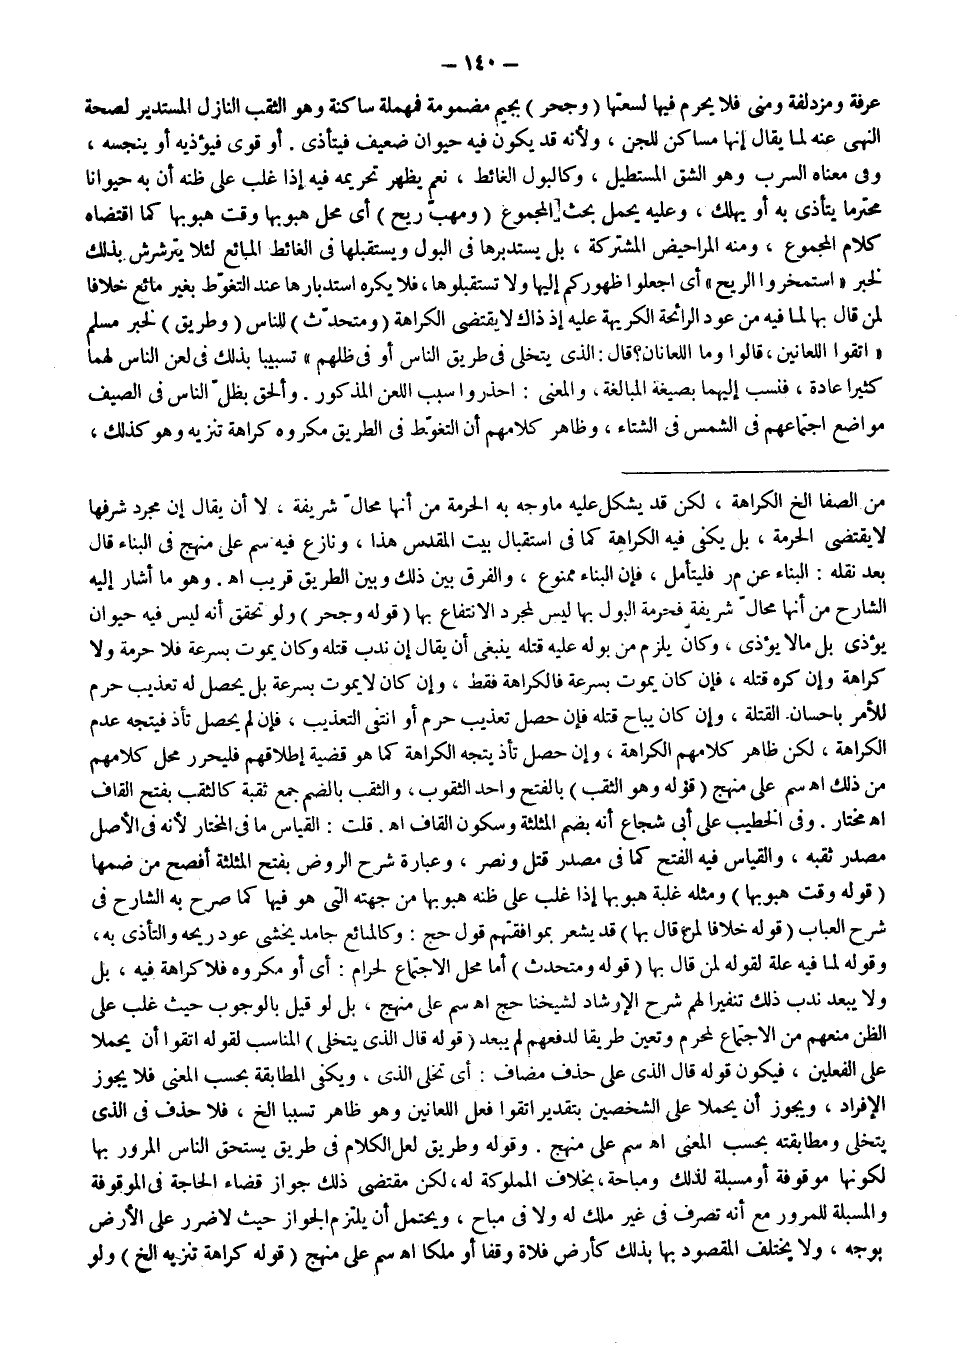 — ١٤٠ —
عرفة ومزدلفة ومنى فلا يحرم فيها لسعتها ( وجحر ) بجيم مضمومة فمهملة ساكنة وهو الثقب النازل المستدير لصحة
النهى عنه لما يقال إنها مساكن للجن ، ولأنه قد يكون فيه حيوان ضعيف فيتأذى . أو قوى فيؤذيه أو ينجسه ،
وفى معناه السرب وهو الشق المستطيل ، وكالبول الغائط ، نعم يظهر تحريمه فيه إذا غلب على ظنه أن به حيوانا
محترما يتأذى به أو يهلك ، وعليه يحمل بحث المجموع ( ومهبّ ريح ) أى محل هبوبها وقت هبوبها كما اقتضاه
كلام المجموع ، ومنه المراحيض المشتركة ، بل يستدبرها فى البول ويستقبلها فى الغائط المائع لئلا يترشرش بذلك
لخبر « استمخروا الريح » أى اجعلوا ظهوركم إليها ولا تستقبلوها ، فلا يكره استدبارها عند التغوّط بغير مائع خلافا
لمن قال بها لما فيه من عود الرائحة الكريهة عليه إذ ذاك لا يقتضى الكراهة ( ومتحدّث ) للناس ( وطريق ) لخبر مسلم
« اتقوا اللعانين ، قالوا وما اللعانان؟ قال : الذى يتخلى فى طريق الناس أو فى ظلهم » تسببا بذلك فى لعن الناس لهما
كثيرا عادة ، فنسب إليهما بصيغة المبالغة ، والمعنى : احذروا سبب اللعن المذكور . وألحق بظلّ الناس فى الصيف
مواضع اجتماعهم فى الشمس فى الشتاء ، وظاهر كلامهم أن التغوّط فى الطريق مكروه كراهة تنزيه وهو كذلك ،
من الصفا الخ الكراهة ، لكن قد يشكل عليه ماوجه به الحرمة من أنها محالّ شريفة ، لا أن يقال إن مجرد شرفها
لايقتضى الحرمة ، بل يكفى فيه الكراهة كما فى استقبال بيت المقدس هذا ، ونازع فيه سم على منهج فى البناء قال
بعد نقله : البناء عن مر فليتأمل ، فإن البناء ممنوع ، والفرق بين ذلك وبين الطريق قريب اه . وهو ما أشار إليه
الشارح من أنها محالّ شريفة فحرمة البول بها ليس لمجرد الانتفاع بها ( قوله وجحر ) ولو تحقق أنه ليس فيه حيوان
يؤذى بل مالا يؤذى ، وكان يلزم من بوله عليه قتله ينبغى أن يقال إن ندب قتله وكان يموت بسرعة فلا حرمة ولا
كراهة وإن كره قتله ، فإن كان يموت بسرعة فالكراهة فقط ، وإن كان لايموت بسرعة بل يحصل له تعذيب حرم
للأمر باحسان القتلة ، وإن كان يباح قتله فإن حصل تعذيب حرم أو انتفى التعذيب ، فإن لم يحصل تأذ فيتجه عدم
الكراهة ، لكن ظاهر كلامهم الكراهة ، وإن حصل تأذ يتجه الكراهة كما هو قضية إطلاقهم فليحرر محل كلامهم
من ذلك اه سم على منهج ( قوله وهو الثقب ) بالفتح واحد الثقوب ، والثقب بالضم جمع ثقبة كالثقب بفتح القاف
اه مختار . وفى الخطيب على أبى شجاع أنه بضم المثلثة وسكون القاف اه . قلت : القياس ما فى المختار لأنه فى الأصل
مصدر ثقبه ، والقياس فيه الفتح كما فى مصدر قتل ونصر ، وعبارة شرح الروض بفتح المثلثة أفصح من ضمها
( قوله وقت هبوبها ) ومثله غلبة هبوبها إذا غلب على ظنه هبوبها من جهته التى هو فيها كما صرح به الشارح فى
شرح العباب ( قوله خلافا لمن قال بها ) قد يشعر بموافقتهم قول حج : وكالمائع جامد يخشى عود ريحه والتأذى به ،
وقوله لما فيه علة لقوله لمن قال بها ( قوله ومتحدث ) أما محل الاجتماع لحرام : أى أو مكروه فلا كراهة فيه ، بل
ولا يبعد ندب ذلك تنفيرا لهم شرح الإرشاد لشيخنا حج اه سم على منهج ، بل لو قيل بالوجوب حيث غلب على
الظن منعهم من الاجتماع لمحرم وتعين طريقا لدفعهم لم يبعد ( قوله قال الذى يتخلى ) المناسب لقوله اتقوا أن يحملا
على الفعلين ، فيكون قوله قال الذى على حذف مضاف : أى تخلى الذى ، ويكفى المطابقة بحسب المعنى فلا يجوز
الإفراد ، ويجوز أن يحملا على الشخصين بتقدير اتقوا فعل اللعانين وهو ظاهر تسببا الخ ، فلا حذف فى الذى
يتخلى ومطابقته بحسب المعنى اه سم على منهج . وقوله وطريق لعل الكلام فى طريق يستحق الناس المرور بها
لكونها موقوفة أو مسبلة لذلك ومباحة ، بخلاف المملوكة له ، لكن مقتضى ذلك جواز قضاء الحاجة فى الموقوفة
والمسبلة للمرور مع أنه تصرف فى غير ملك له ولا فى مباح ، ويحتمل أن يلتزم الجواز حيث لاضرر على الأرض
بوجه ، ولا يختلف المقصود بها بذلك كأرض فلاة وقفا أو ملكا اه سم على منهج ( قوله كراهة تنزيه الخ ) ولو